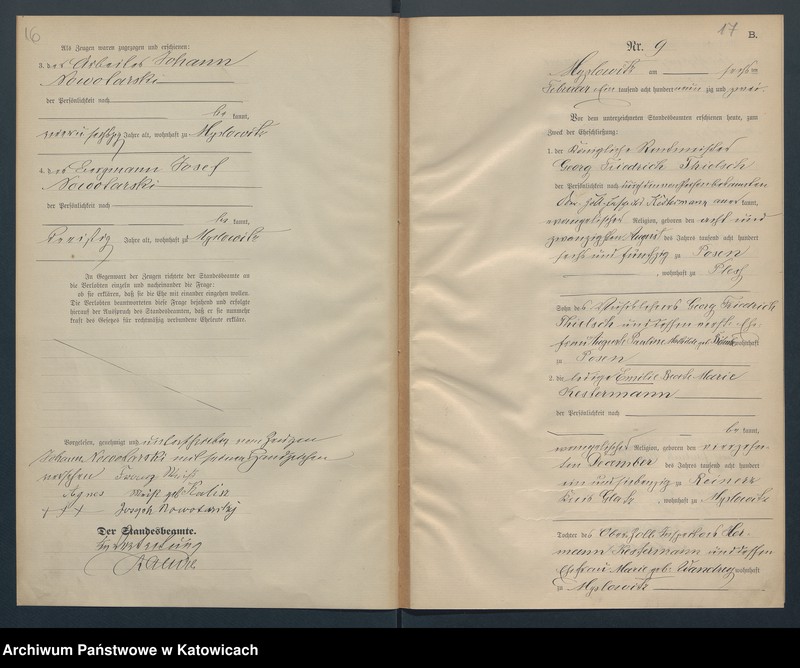 16
Als Zeugen waren zugezogen und erschienen:
3. der Arbeiter Johann
Nowotarski
der Persönlichkeit nach
be kannt,
Jahre alt, wohnhaft zu Myslowitz
4. der Bergmann Josef
Nowotarski
der Persönlichkeit nach
be kannt,
dreißig Jahre alt, wohnhaft zu Myslowitz
In Gegenwart der Zeugen richtete der Standesbeamte an
die Verlobten einzeln und nacheinander die Frage:
ob sie erklären, daß sie die Ehe mit einander eingehen wollen.
Die Verlobten beantworteten diese Frage bejahend und erfolgte
hierauf der Ausspruch des Standesbeamten, daß er sie nunmehr
kraft des Gesetzes für rechtmäßig verbundene Eheleute erkläre.
Vorgelesen, genehmigt und unterschrieben vom Zeugen
Johann Nowotarski mit seinem Handzeichen
versehen Franz
Agnes geb.
+++ Joseph Nowotarski
Der Standesbeamte.
In Vertretung
17
B.
Nr. 9
Myslowitz am
Februar Ein tausend acht hundert neun zig und zwei
Vor dem unterzeichneten Standesbeamten erschienen heute, zum
Zweck der Eheschließung:
1. der Königliche Rentmeister
Georg Friedrich Thielsch
der Persönlichkeit nach durch den
Ober-Zoll-Inspector Kestermann aner kannt,
evangelischer Religion, geboren den acht und
zwanzigsten August des Jahres tausend acht hundert
sechs und fünfzig zu Posen
, wohnhaft zu Pless
Sohn des Georg Friedrich
Thielsch und dessen Ehe-
frau Auguste Pauline Mathilde geb. wohnhaft
zu Posen
2. die ledige Emilie Marie
Kestermann
der Persönlichkeit nach
be kannt,
evangelischer Religion, geboren den vierzehn-
ten December des Jahres tausend acht hundert
ein und siebenzig zu Reinerz
Kreis Glatz, wohnhaft zu Myslowitz
Tochter des Ober-Zoll-Inspectors Her-
mann Kestermann und dessen
Ehefrau Marie geb. wohnhaft
zu Myslowitz
Archiwum Państwowe w Katowicach